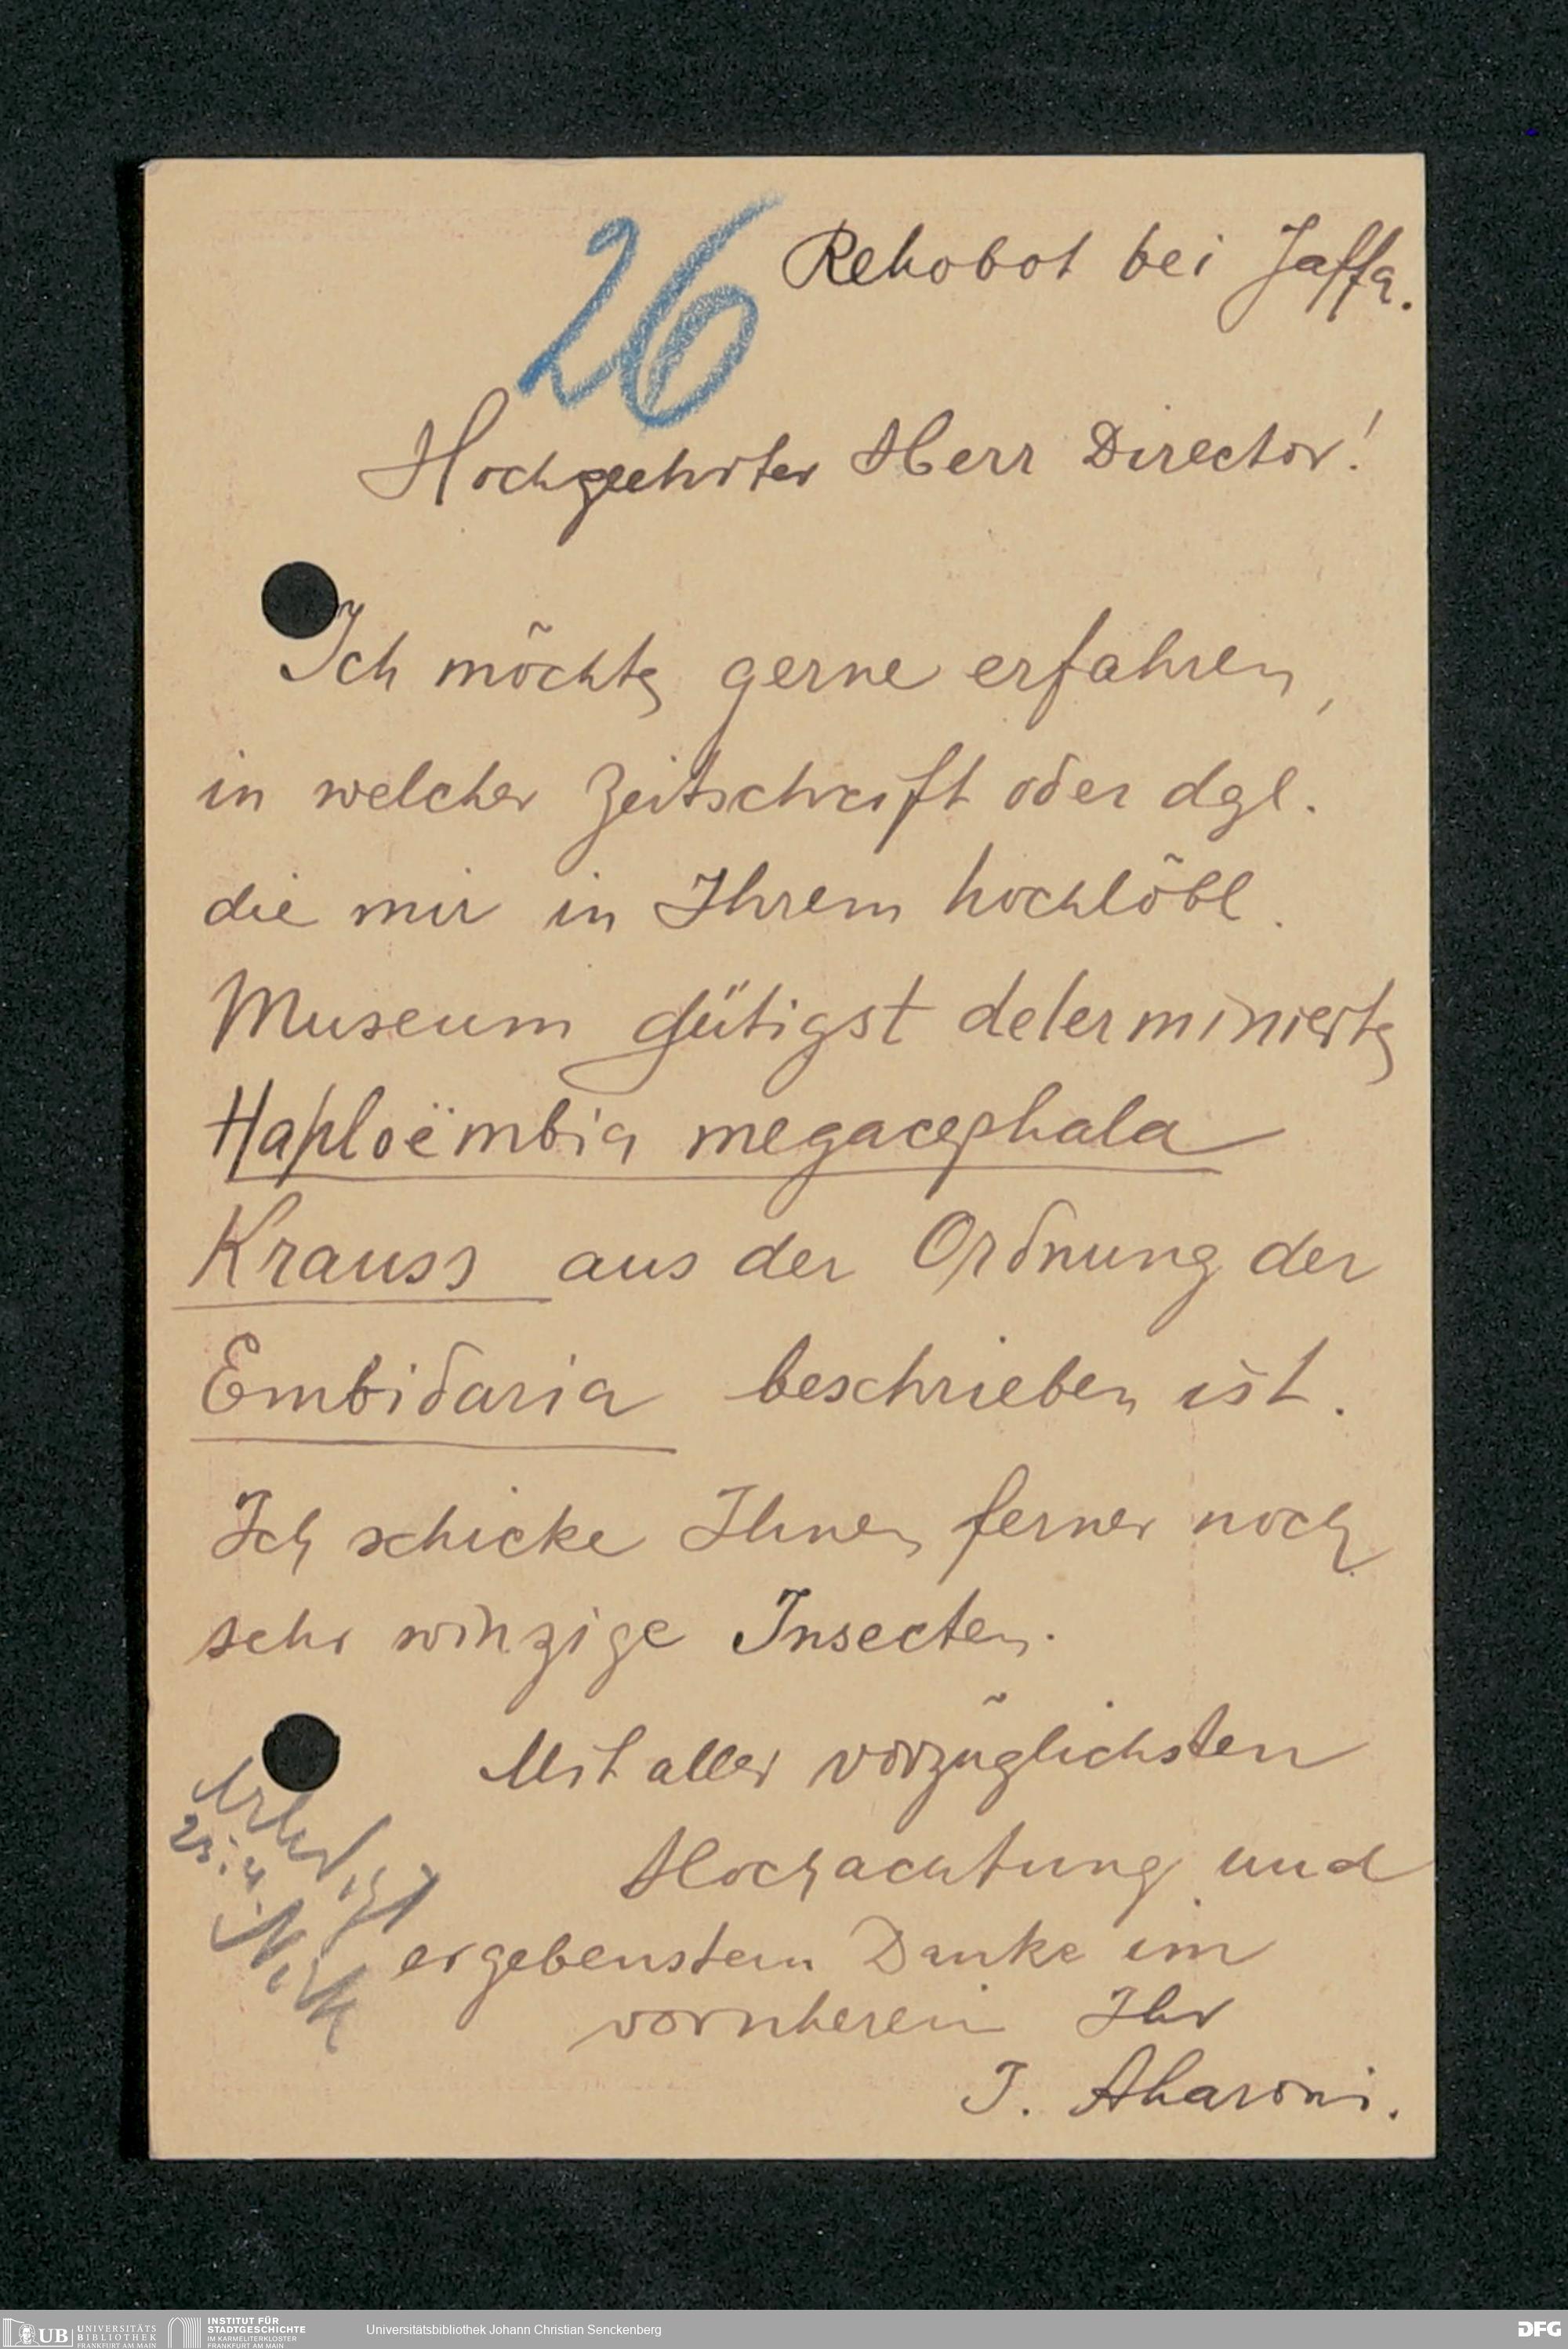 26
Rehobot bei Jaffa.
Hochgeehrter Herr Director!
Ich möchte gerne erfahren,
in welcher Zeitschrift oder dgl.
die mir in Ihrem hochlöbl.
Museum gütigst determinierte
Haploëmbia megacephala
Krauss aus der Ordnung der
Embidaria beschrieben ist.
Ich schicke Ihnen ferner noch
sehr winzige Insecten.
Mit aller vorzüglichsten
Hochachtung und
ergebenstem Danke im
vornherein Ihr
J. Aharoni.
erledigt
UB UNIVERSITÄTS
BIBLIOTHEK
FRANKFURT AM MAIN
INSTITUT FÜR
STADTGESCHICHTE
IM KARMELITERKLOSTER
FRANKFURT AM MAIN
Universitätsbibliothek Johann Christian Senckenberg
DFG